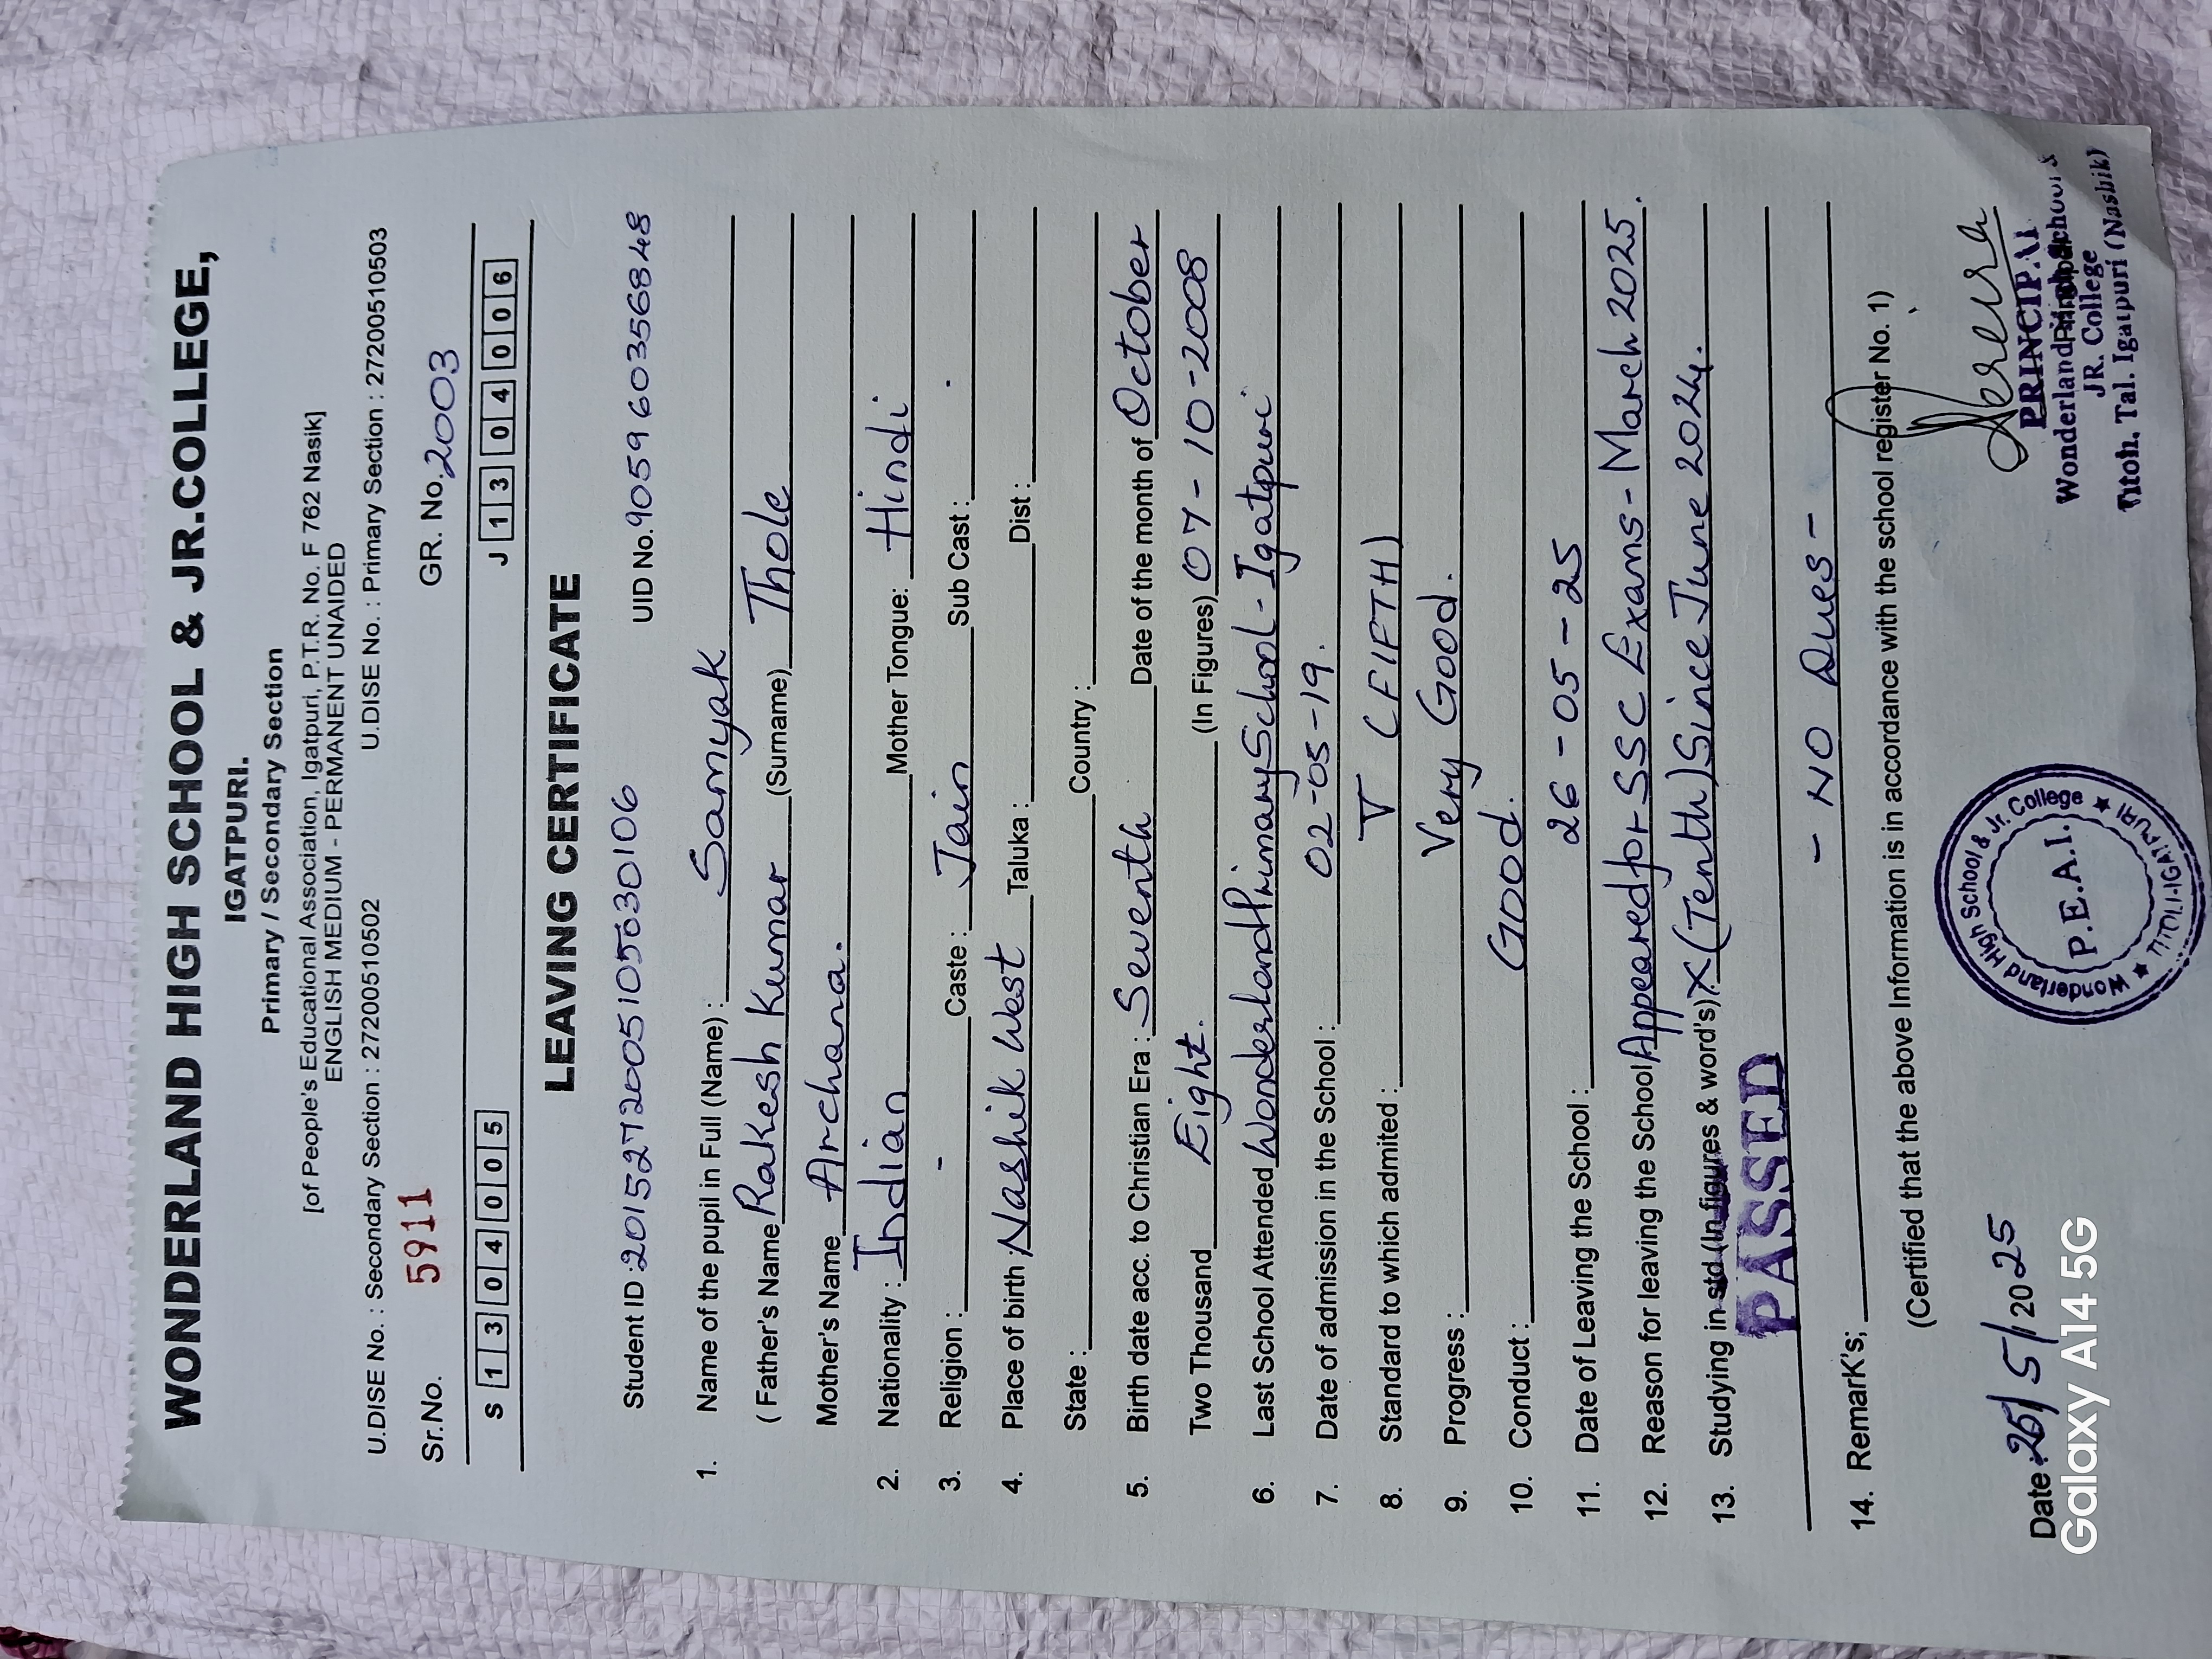 WONDERLAND HIGH SCHOOL & JR.COLLEGE,
IGATPURI.
Primary / Secondary Section
[of People's Educational Association, Igatpuri, P.T.R. No. F 762 Nasik]
ENGLISH MEDIUM - PERMANENT UNAIDED
U.DISE No. : Secondary Section : 27200510502 U.DISE No. : Primary Section : 27200510503
Sr.No. 5911 GR. No. 2003
S 1 3 0 4 0 0 5 J 1 3 0 4 0 0 6
LEAVING CERTIFICATE
Student ID 2015272005105030106 UID No. 905960356848
1. Name of the pupil in Full (Name) : Samyak
( Father's Name Rakesh Kumar (Surname) Thole
Mother's Name Archana.
2. Nationality : Indian Mother Tongue: Hindi
3. Religion : - Caste : Jain Sub Cast : -
4. Place of birth Nashik West Taluka : Dist :
State : Country :
5. Birth date acc. to Christian Era : Seventh Date of the month of October
Two Thousand Eight. (In Figures) 07-10-2008
6. Last School Attended Wonderland Primary School - Igatpuri
7. Date of admission in the School : 02-05-19.
8. Standard to which admited : V (FIFTH)
9. Progress : Very Good.
10. Conduct : Good.
11. Date of Leaving the School : 26-05-25
12. Reason for leaving the School Appeared for SSC Exams - March 2025.
13. Studying in std (In figures & word's) X (Tenth) Since June 2024.
PASSED
14. Remark's; - NO Dues -
(Certified that the above Information is in accordance with the school register No. 1)
Wonderland High School & Jr. College ★ TITOLI-IGATPURI ★
P.E.A.I.
Date : 26/5/2025
PRINCIPAL
Wonderland High School's
JR. College
Titoli, Tal. Igatpuri (Nashik)
Galaxy A14 5G